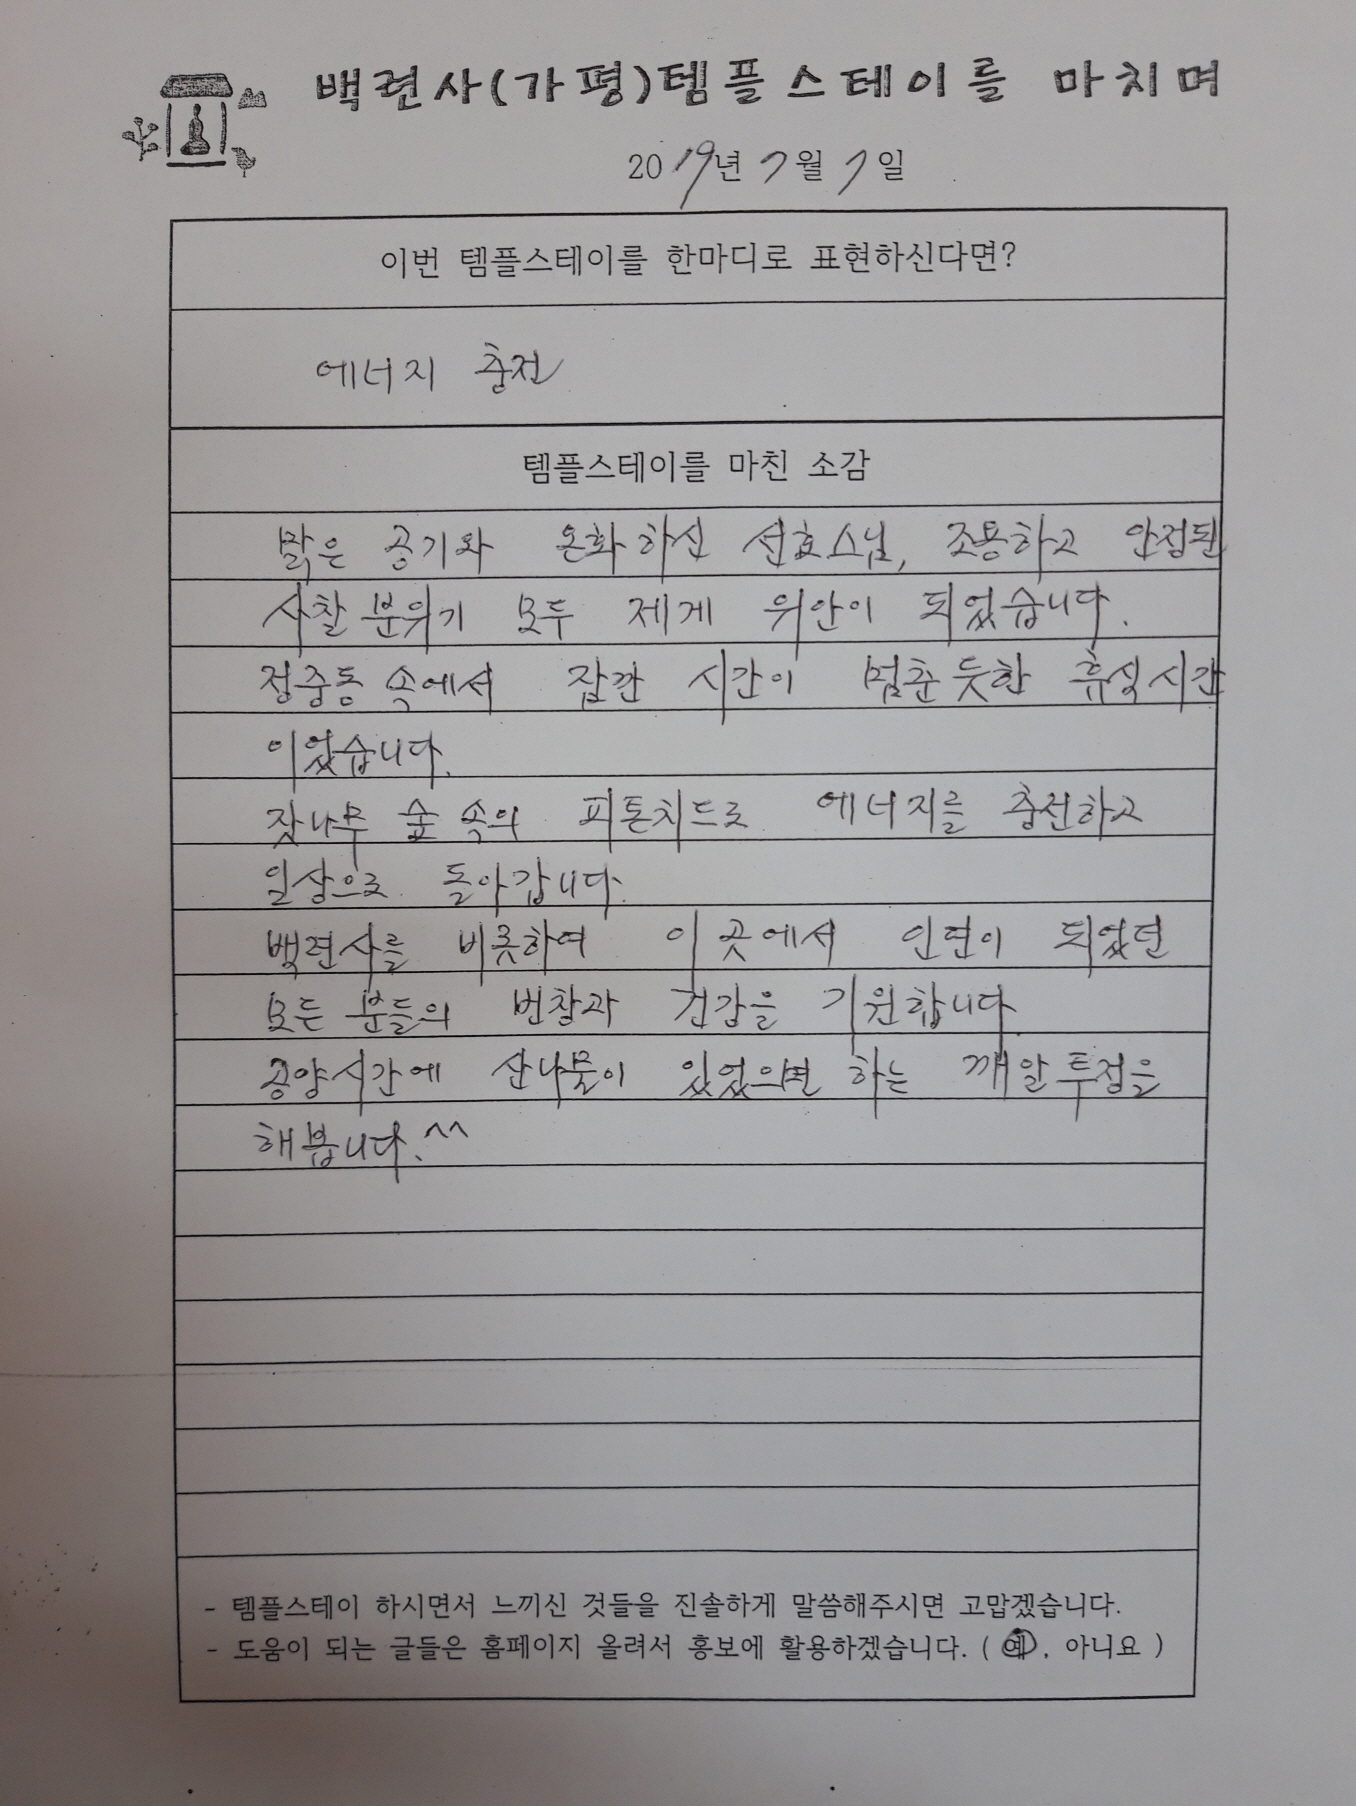 백련사(가평)템플스테이를 마치며
2019년 7월 7일
이번 템플스테이를 한마디로 표현하신다면?
에너지 충전
템플스테이를 마친 소감
맑은 공기와 온화하신 선효스님, 조용하고 안정된
사찰 분위기 모두 제게 위안이 되었습니다.
정중동 속에서 잠깐 시간이 멈춘듯한 휴식시간
이었습니다.
잣나무 숲 속의 피톤치드로 에너지를 충전하고
일상으로 돌아갑니다.
백련사를 비롯하여 이 곳에서 인연이 되었던
모든 분들의 번창과 건강을 기원합니다.
공양시간에 산나물이 있었으면 하는 깨알 투정을
해봅니다.^^
- 템플스테이 하시면서 느끼신 것들을 진솔하게 말씀해주시면 고맙겠습니다.
- 도움이 되는 글들은 홈페이지 올려서 홍보에 활용하겠습니다. ( 예, 아니요 )